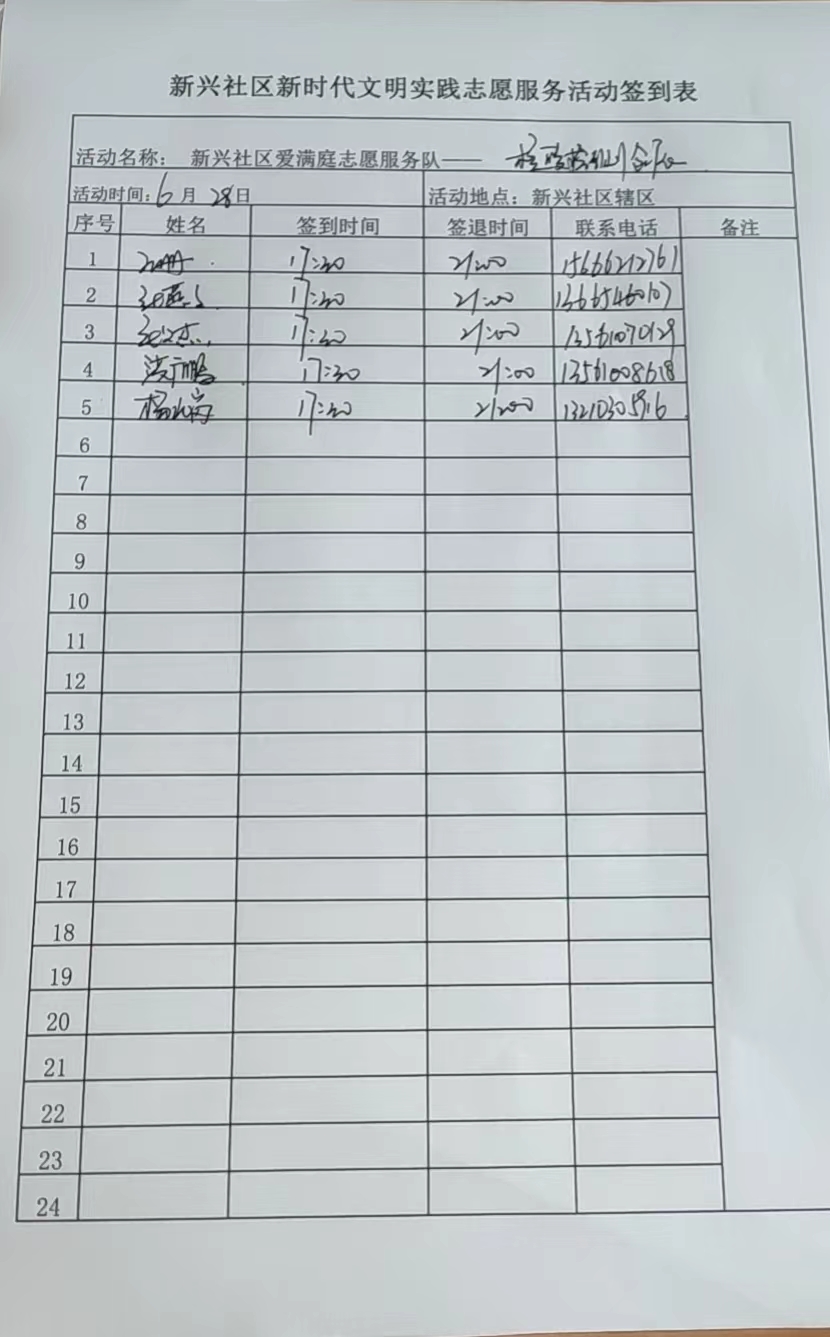 新兴社区新时代文明实践志愿服务活动签到表
活动名称： 新兴社区爱满庭志愿服务队——
活动时间：6 月 28日 活动地点：新兴社区辖区
序号 姓名 签到时间 签退时间 联系电话 备注
1 17:30 21:00 15666212761
2 17:30 21:00 13665460107
3 17:30 21:00 13561070129
4 17:30 21:00 13561008618
5 杨 17:30 21:00 13210305916
6
7
8
9
10
11
12
13
14
15
16
17
18
19
20
21
22
23
24